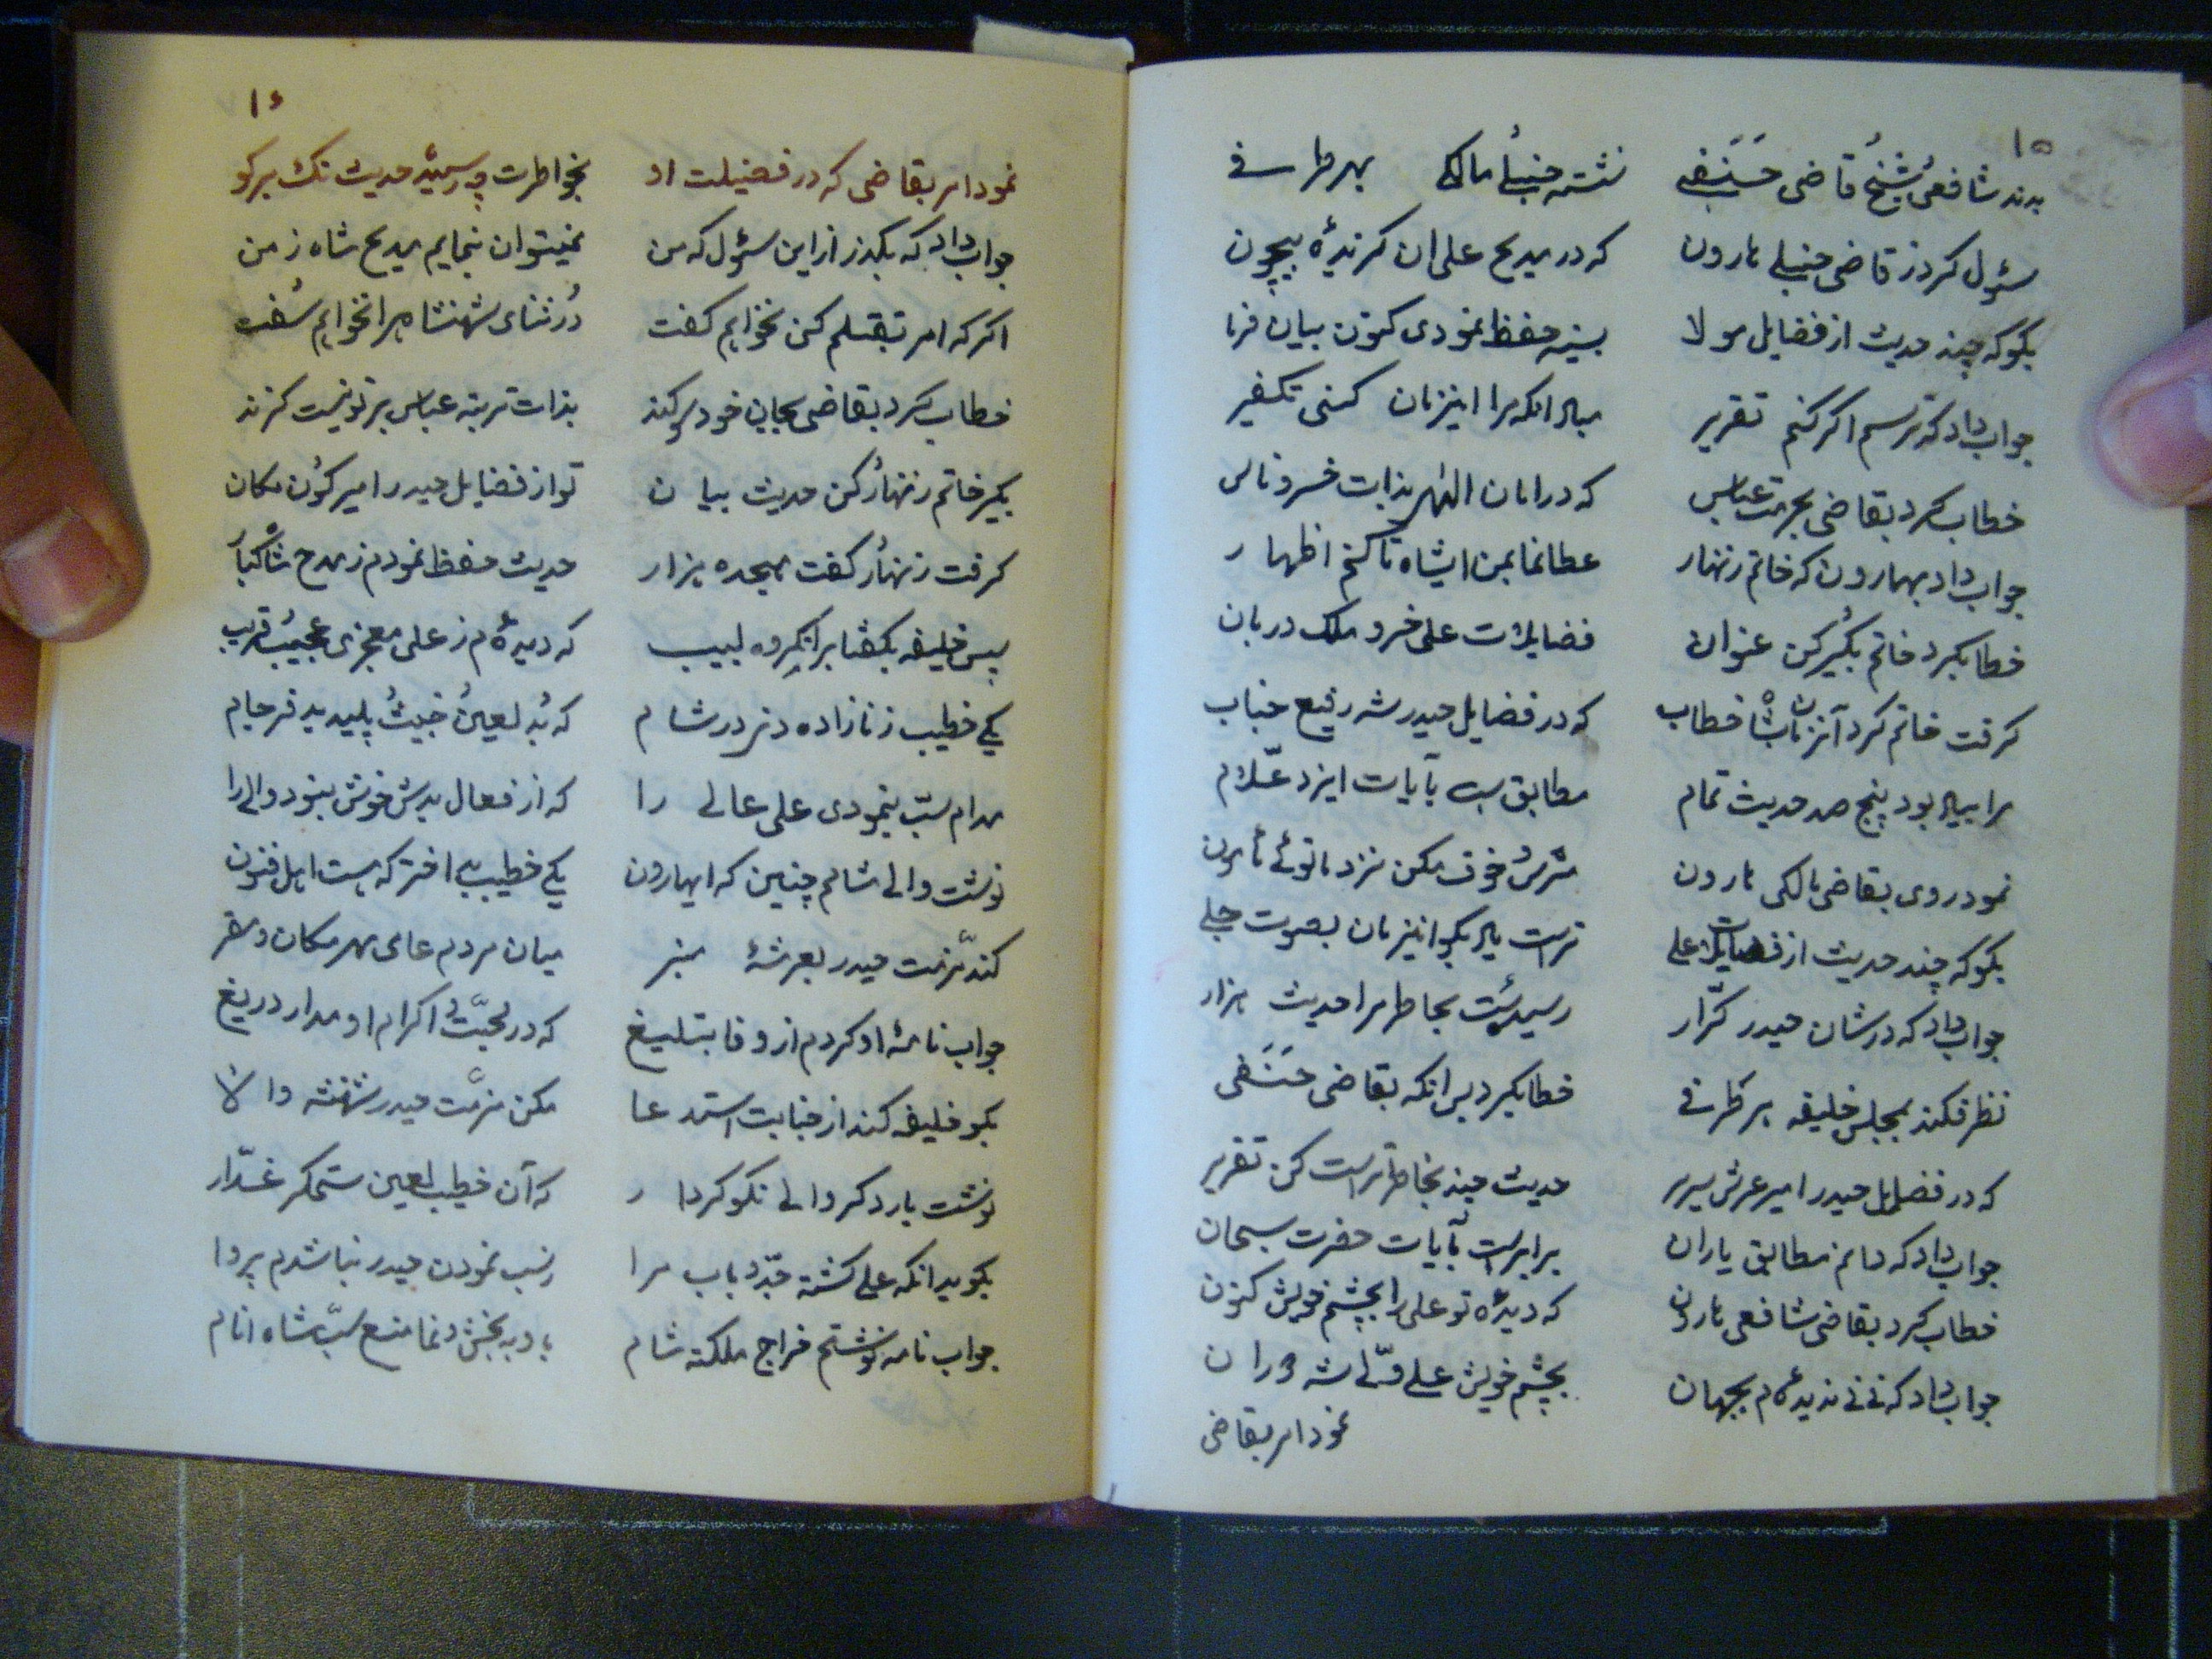 ۱۵
بدند شافعی شیخ قاضی حنفی نشسته حنبلی مالکی بهر طرفی
سئول کرد ز قاضی حنبلی هارون که در مدیح علی ان گزیدهٔ بیچون
بگو که چند حدیث از فضایل مولا بسینه حفظ نمودی کنون بیان فرما
جواب داد که ترسم اگر کنم تقریر مرا اینزمان کنی تکفیر
خطاب کرد بقاضی بحرمت عباس که در امان الهی بذات خسرو ناس
جواب داد بهارون که خاتم زنهار عطا نما بمن ایشاه تا کنم اظهار
خطاب کرد خاتم بگیر کن عنوان فضایلات علی خسرو ملک دربان
گرفت خاتم کرد آنزمان بشاه خطاب که در فضایل حیدر شه رفیع جناب
مرا بیاد بود پنج صد حدیث تمام مطابق به آیات ایزد علّام
نمود روی بقاضی مالکی هارون مترس خوف مکن نزد ما توئی مأمون
بگو که چند حدیث از فضایلات علی تراست یاد بگو اینزمان بصوت جلی
جواب داد که در شان حیدر کرّار رسیده است بخاطر مرا حدیث هزار
نظر فکند بمجلس خلیفه هر طرفی خطاب کرد پس انکه بقاضی حنفی
که در فضایل حیدر امیر عرش سریر حدیث چند بخاطر تراست کن تقریر
جواب داد که دانم مطابق یاران برابر است بآیات حضرت سبحان
خطاب کرد بقاضی شافعی هارون که دیدهٔ تو علی را بچشم خویش کنون
جواب داد که نی نی ندیده‌ام بجهان بچشم خویش علی ولی شه دوران
نمود امر بقاضی
۱۶
نمود امر بقاضی که در فضیلت او بخاطرت چه رسیده حدیث نک برگو
جواب داد که بگذر از این سئول که من نمیتوان بنمایم مدیح شاه زمن
اگر که امر بقتلم کنی نخواهم گفت دُر ثنای شهنشاه را نخواهم سُفت
خطاب کرد بقاضی بجان خود سوگند بذات تربت عباس بر تو نیست گزند
بگیر خاتم زنهار کن حدیث بیان تو از فضایل حیدر امیر کون مکان
گرفت زنهار گفت هیجده هزار حدیث حفظ نمودم ز مدح شاه کبار
پس خلیفه بگفتا بر انگروه لبیب که دیده‌ام ز علی معجزی عجیب قریب
یکی خطیب زنازاده دنی در شام که بُد لعین خبیث پلید بد فرجام
مدام سبّ بنمودی علی عالی را که از فعال بدش خوش نبود والی را
نوشت والی شامم چنین که ایهارون یکی خطیب بی اختر که هست اهل فنون
کند مذمّت حیدر بعرشهٔ منبر میان مردم عامی بهر مکان و مقر
جواب نامهٔ او کردم از وفا بتبلیغ که در محبّت اکرام او مدار دریغ
بگو خلیفه کند از جنابت استدعا مکن مذمّت حیدر شهنشه والا
نوشت بار دگر والی نکو کردار که آن خطیب لعین ستمگر غدّار
بگوید انکه علی کشته جدّ باب مرا ز سب نمودن حیدر نباشدم پروا
جواب نامه نوشتم خراج مملکت شام باو ببخش و نما منع سبّ شاه انام